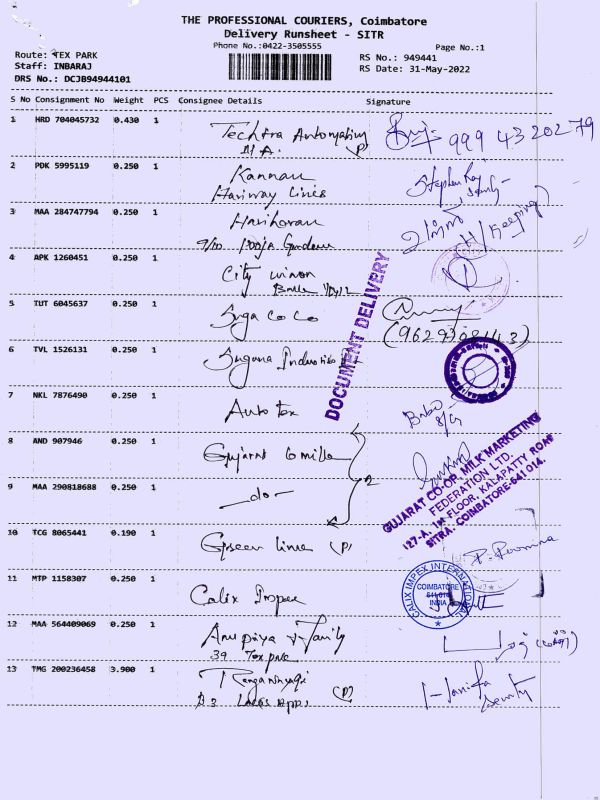 THE PROFESSIONAL COURIERS, Coimbatore
Delivery Runsheet - SITR
Phone No.:0422-3505555
Page No.:1
Route: TEX PARK
Staff: INBARAJ
DRS No.: DCJB94944101
RS No.: 949441
RS Date: 31-May-2022
S No Consignment No Weight PCS Consignee Details Signature
1 HRD 704045732 0.430 1 Techtra Automation
999 43 202 79
2 PDK 5995119 0.250 1 Kannan
Hariway Lines
Stephen Raj
3 MAA 284747794 0.250 1 Hariharan
9/10 Pooja Garden
4 APK 1260451 0.250 1 City Union
Bank
5 TUT 6045637 0.250 1 Suga Co Co
6 TVL 1526131 0.250 1 Suguna Industries
DOCUMENT DELIVERY
7 NKL 7876490 0.250 1 Auto Tex
Babu
8 AND 907946 0.250 1 Gujarat Co milk
9 MAA 290818688 0.250 1 -do-
2
GUJARAT CO-OP. MILK MARKETING
FEDERATION LTD.
127-A, 1st FLOOR, KALAPATTY ROAD
SITRA. COIMBATORE-641 014.
10 TCG 8065441 0.190 1 Green line (P)
11 MTP 1158307 0.250 1 Calix Impex
CALIX IMPEX INTERNATIONAL
COIMBATORE
641 014
INDIA
12 MAA 564409069 0.250 1 Anupriya & Family
39 Tex park
13 TMG 200236458 3.900 1